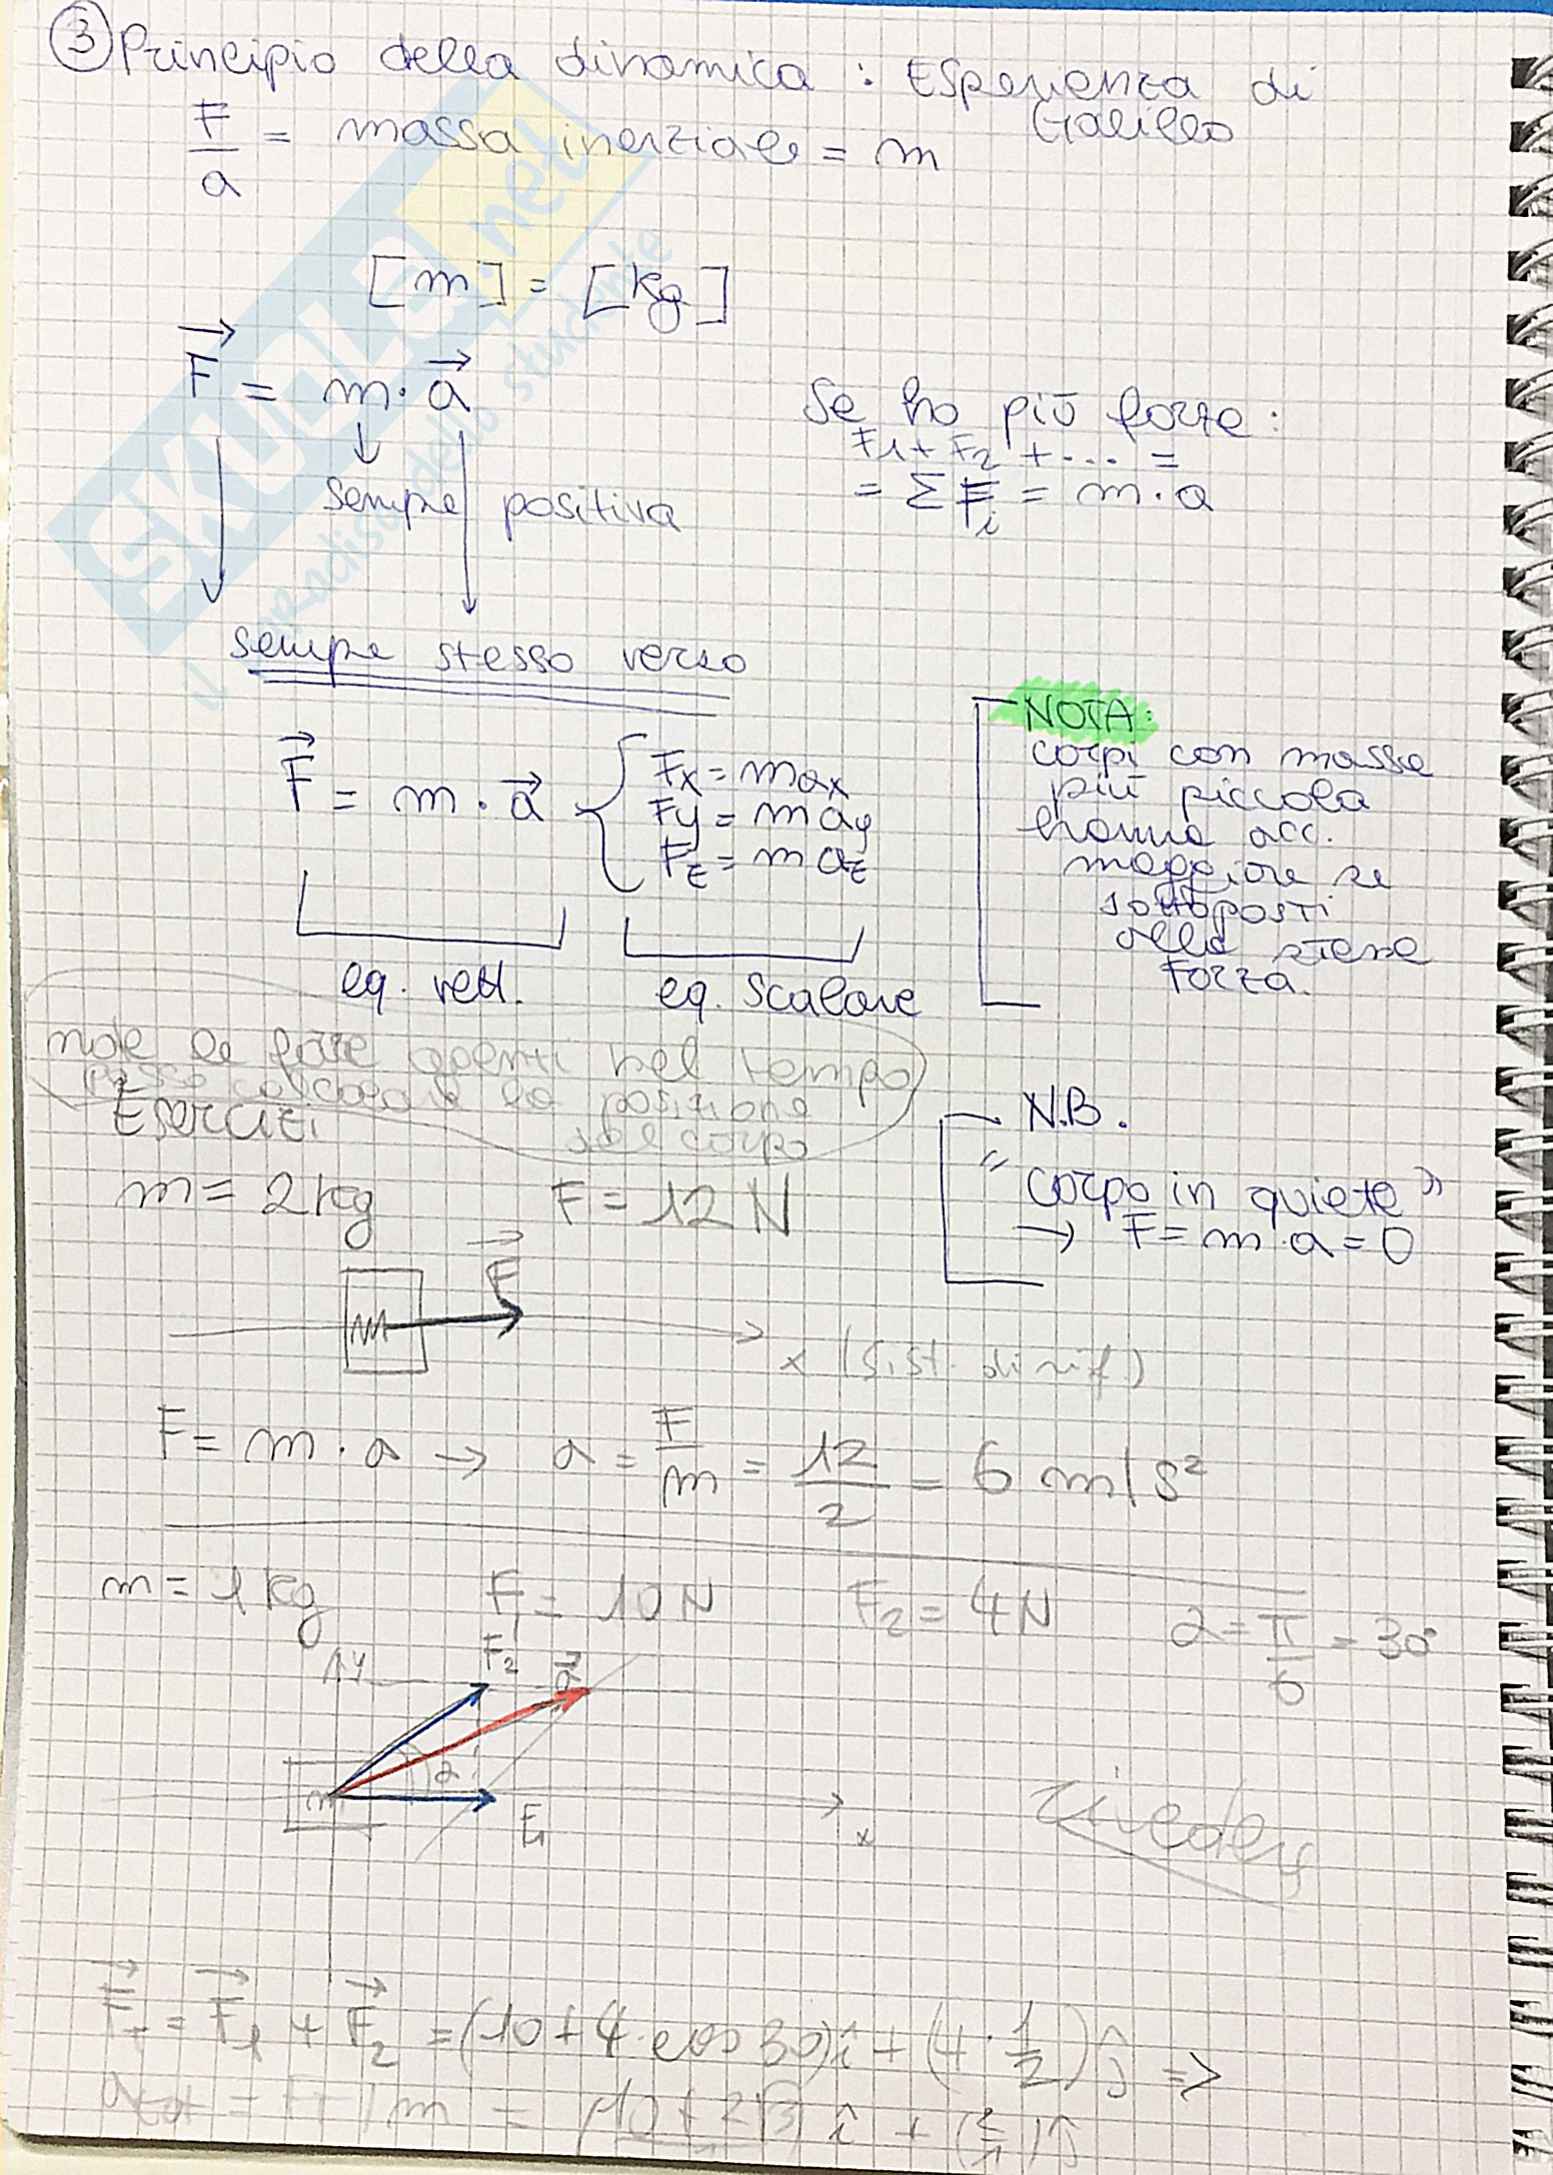 ③ Principio della dinamica : Esperienza di Galileo
F/a = massa inerziale = m
[m] = [kg]
F⃗ = m · a⃗
sempre positiva
sempre stesso verso
Se ho più forze :
F1 + F2 + .... =
= Σ Fi = m · a
F⃗ = m · a⃗ { Fx = max
Fy = may
Fz = maz
eq. vett. eq. scalare
NOTA:
corpi con massa
più piccola
hanno acc.
maggiore se
sottoposti
alla stessa
forza.
note le forze agenti nel tempo
posso calcolare la posizione
del corpo
Esercizi
N.B.
"corpo in quiete"
→ F = m · a = 0
m = 2 kg F = 12 N
m F⃗
x (sist. di rif.)
F = m · a → a = F/m = 12/2 = 6 m/s²
m = 1 kg F1 = 10 N F2 = 4 N α = π/6 = 30°
y F2 a⃗
m α F1 x
F⃗T = F⃗1 + F⃗2 = (10 + 4 · cos 30) î + (4 · 1/2) ĵ =>
atot = FT / m = (10 + 2√3) î + (2/1) ĵ
SKUOLA.net
il paradiso dello studente